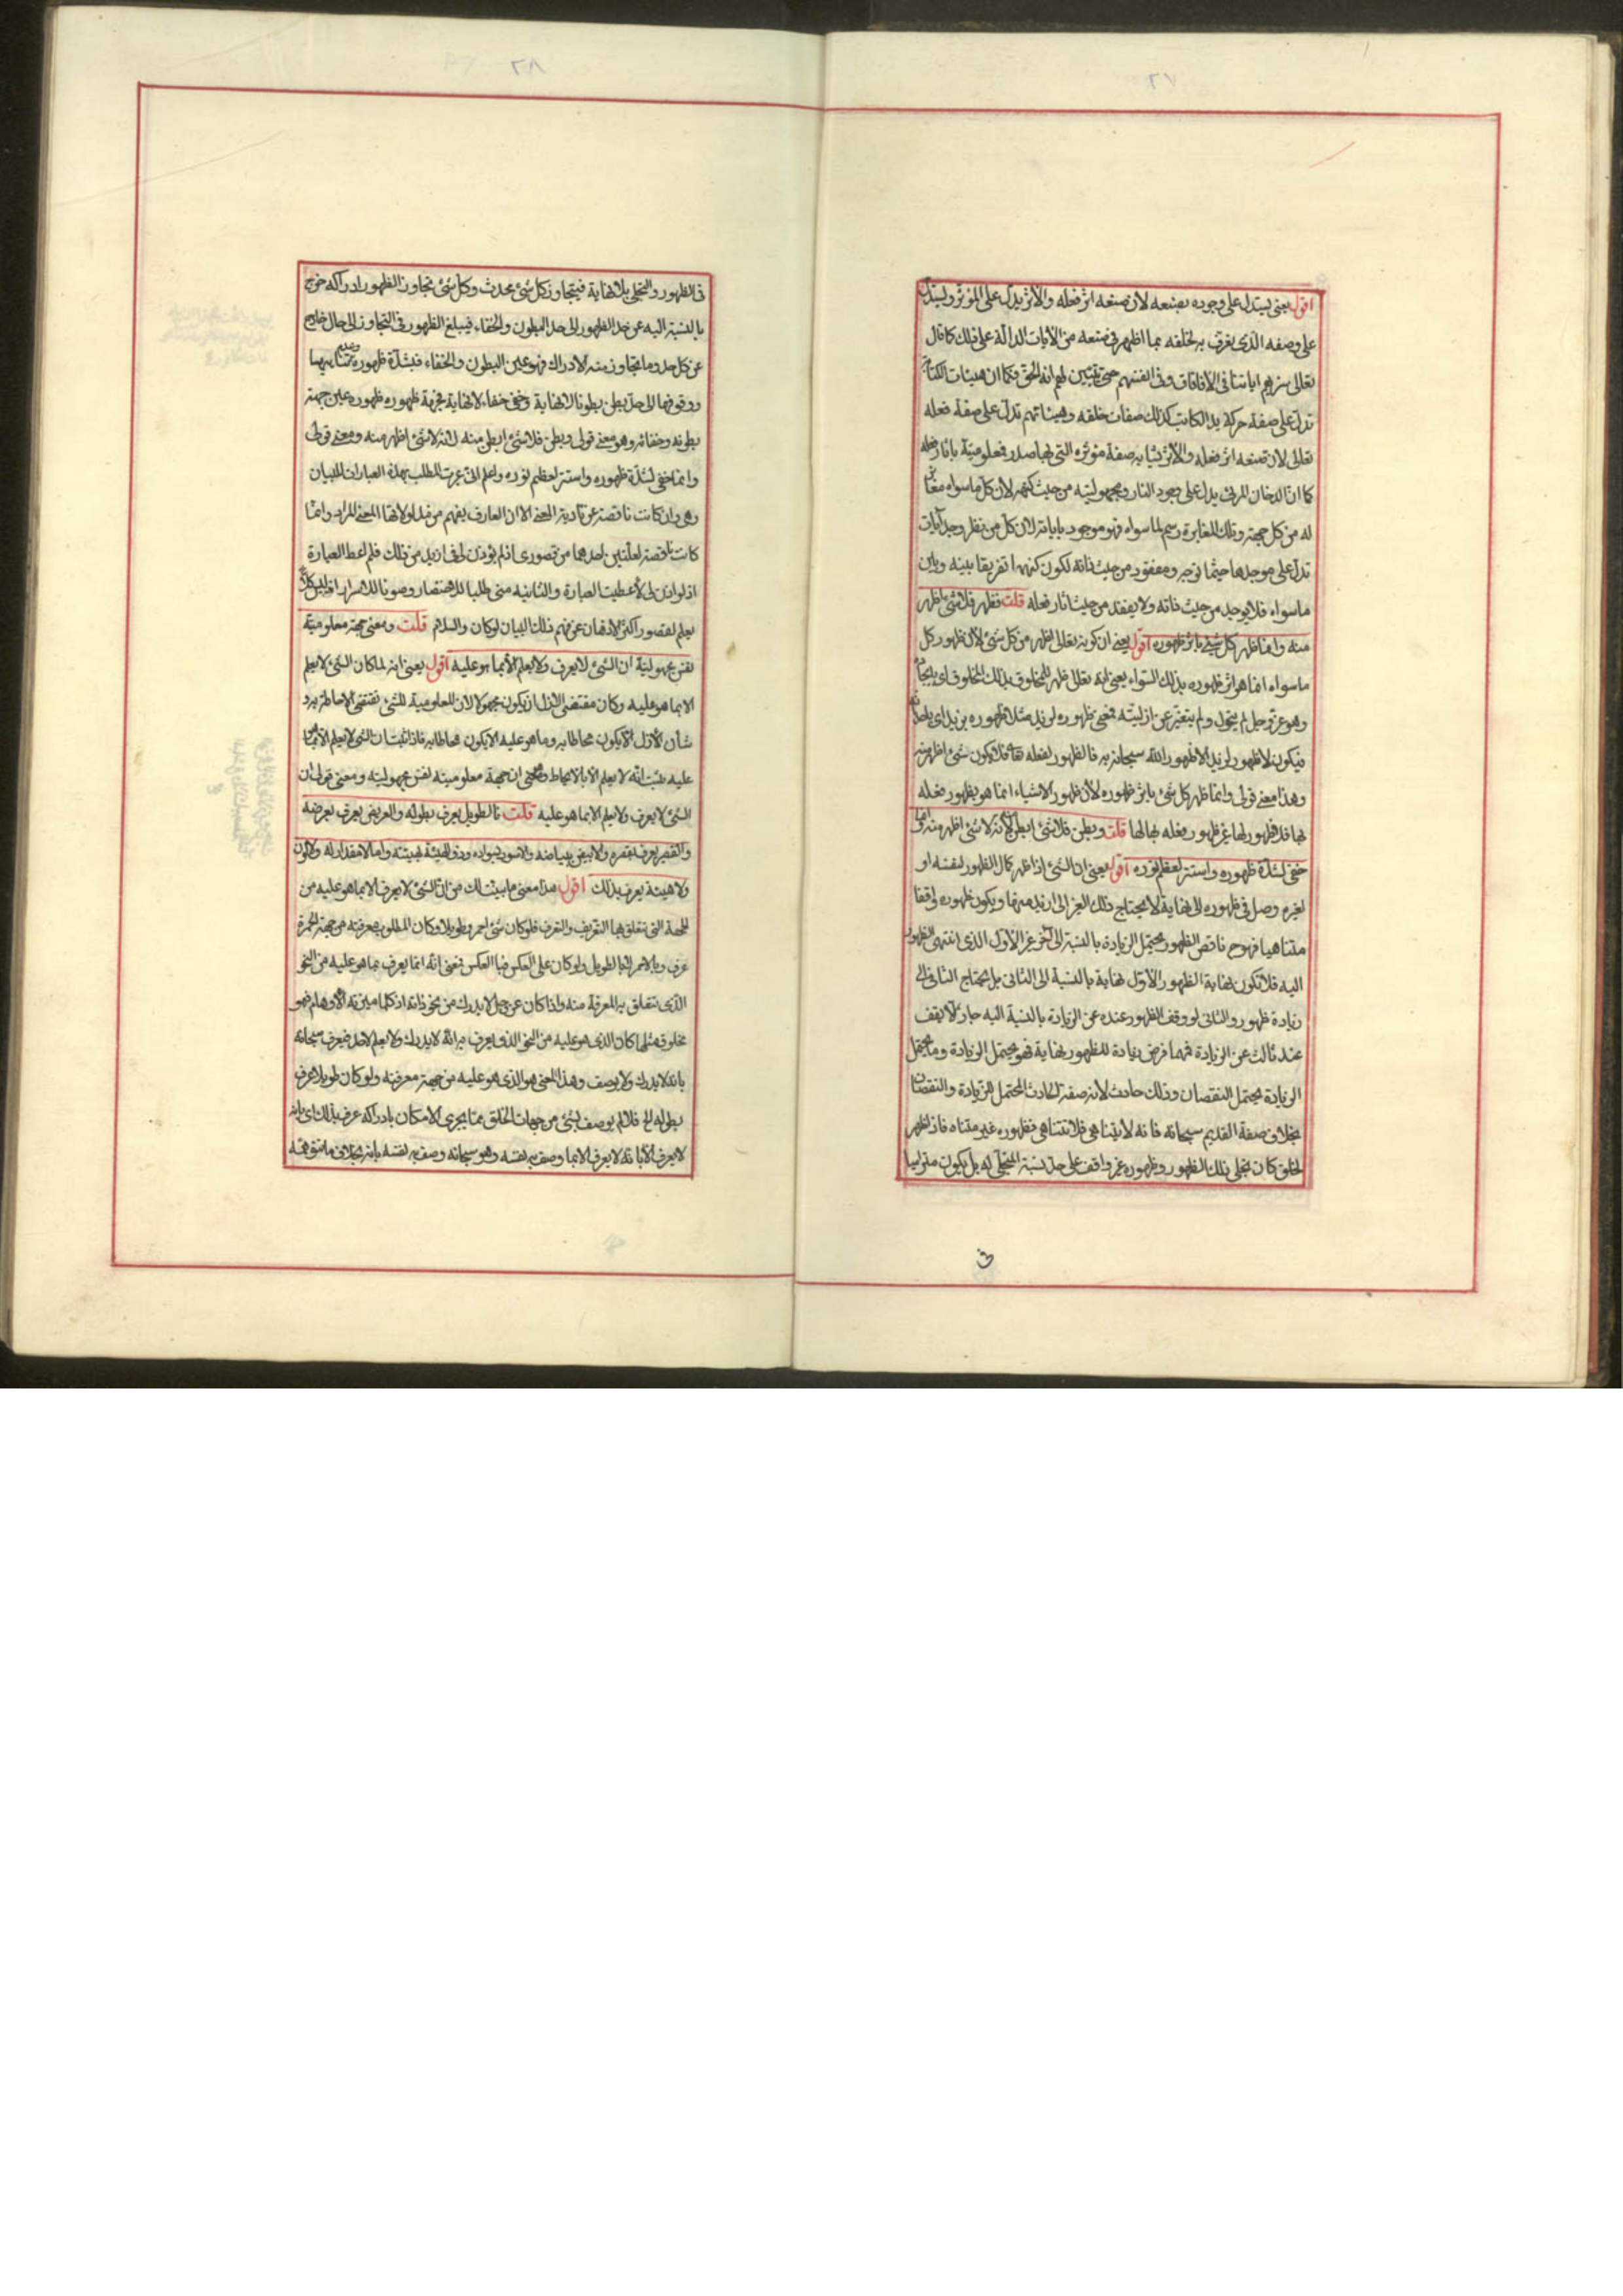 ٢٧
اقول يعنى يستدل على وجوده بصنعه لان صنعه اثر فعله والاثر يدل على المؤثر ويستدل
على وصفه الذى يعرف به لخلقه بما اظهر فى صنعه من الآيات الدالة على ذلك كما قال
تعالى سنريهم اياتنا فى الآفاق وفى انفسهم حتى يتبين لهم انه الحق فكما ان هيئات الكتابة
تدل على صفة حركة يد الكاتب كذلك صفات خلقه وهيئاتهم تدل على صفة فعله
تعالى لان صنعه اثر فعله والاثر يشابه صفة مؤثره التى بها صدر فمعلوميته باثار فعله
كما ان الدخان المرئى يدل على وجود النار ومجهوليته من حيث كنهه لان كل ما سواه مغاير
له من كل جهة وتلك المغايرة رسم لما سواه فهو موجود باياته لان كل من نظر وجد آيات
تدل على موجدها حيثما توجه ومفقود من حيث ذاته لكون كنهه تفريقا بينه وبين
ماسواه فلا يوجد من حيث ذاته ولا يفقد من حيث اثار فعله قلت فظهر فلا شئ اظهر
منه وانما ظهر كل شئ باثر ظهوره اقول يعنى ان كونه تعالى اظهر من كل شئ لان ظهور كل
ماسواه انما هو اثر ظهوره بذلك السواء يعنى انه تعالى ظهر للمخلوق بذلك المخلوق اى بايجاده
وهو عز وجل لم يتحول ولم يتغير عن ازليته فمعنى ظهوره لزيد مثلا ظهوره بزيد اى باحداثه
فيكون لا ظهور لزيد الا ظهور الله سبحانه به فالظهور لفعله فلا يكون شئ اظهر منه
وهذا معنى قولى وانما ظهر كل شئ باثر ظهوره لان ظهور الاشياء انما هو بظهور فعله
بها فلا ظهور لها غير ظهور فعله بها لها قلت وبطن فلا شئ ابطن منه لانه لا شئ اظهر منه وانما
خفى لشدة ظهوره واستتر لعظم نوره اقول يعنى ان الشئ اذا ظهر كمال الظهور لنفسه او
لغيره وصل فى ظهوره الى نهاية لا يحتاج ذلك الغير الى ازيد منها ويكون ظهوره واقفا
متناهيا فهو ح ناقص الظهور يحتمل الزيادة بالنسبة الى آخر غير الاول الذى انتهى الظهور
اليه فلا تكون نهاية الظهور الاول نهاية بالنسبة الى الثانى بل يحتاج الثانى الى
زيادة ظهور والثانى لو وقف الظهور عنده عن الزيادة بالنسبة اليه جاز ان لا يقف
عند ثالث عن الزيادة فمهما فرض زيادة للظهور بنهاية فهو يحتمل الزيادة وما يحتمل
الزيادة يحتمل النقصان وذلك حادث لانه صفة الحادث المحتمل للزيادة والنقصان
بخلاف صفة القديم سبحانه فانه لا يتناهى فلا تتناهى فظهوره غير متناه فاذا ظهر
لخلق كان تجلى ذلك الظهور وظهوره غير واقف على حد نسبة المتجلى له بل يكون متراميا
فى
٢٨
فى الظهور والتجلى بلا نهاية فيتجاوز كل شئ محدث وكل شئ تجاوز الظهور ادراكه خرج
بالنسبة اليه عن حد الظهور الى حد البطون والخفاء فيبلغ الظهور فى التجاوز الى حال خارج
عن كل حد وما تجاوز منه الادراك فهو عين البطون والخفاء فبشدة ظهوره وعدم تناهيها
ووقوفها الى حد بطن بطونا لا نهاية وخفى خفاء لا نهاية فجهة ظهوره ظهوره عين جهة
بطونه وخفائه وهو معنى قولى وبطن فلا شئ ابطن منه لانه لا شئ اظهر منه ومعنى قولى
وانما خفى لشدة ظهوره واستتر لعظيم نوره واعلم انى عبرت للمطلب بهذه العبارات للبيان
وهى وان كانت ناقصة عن تادية المعنى الا ان العارف يفهم من مدلولاتها المعنى المراد وانما
كانت ناقصة لعلتين احدهما من قصورى اذ لم يؤذن لى فى ازيد من ذلك فلم اعط العبارة
اذ لو اذن لى لأعطيت العبارة والثانية منى طلبا للاختصار وصونا للاسرار اذ ليس كل
يعلم لقصور اكثر الاذهان عن فهم ذلك البيان لو كان والسلام قلت ومعنى جهة معلوميته
نفس مجهوليته ان الشئ لا يعرف ولا يعلم الا بما هو عليه اقول يعنى انه لما كان الشئ لا يعلم
الا بما هو عليه وكان مقتضى الازل ان يكون مجهولا لان المعلومية للشئ تقتضى الاحاطة به و
شأن الازل ان لا يكون محاطا به وما هو عليه الا يكون محاطا به فاذا ثبت ان الشئ لا يعلم الا بما هو
عليه ثبت انه لا يعلم الا بالا يحاط ومعنى ان جهة معلوميته نفس مجهوليته ومعنى قولى ان
الشئ لا يعرف ولا يعلم الا بما هو عليه قلت فالطويل يعرف بطوله والعريض يعرف بعرضه
والقصير يعرف بقصره والابيض ببياضه والاسود بسواده وذو الهيئة بهيئته واما لا مقدار له ولا لون
ولا هيئة يعرف بذلك اقول هذا معنى ما بينت لك من ان الشئ لا يعرف الا بما هو عليه من
الجهة التى تتعلق بها التعريف والتعرف فلو كان شئ احمر وطويلا وكان المطلوب معرفته من جهة الحمرة
عرف بالاحمر لا بالطويل ولو كان على العكس فبالعكس فمعنى انه انما يعرف بما هو عليه من النحو
الذى تتعلق به المعرفة منه ولذا كان عز وجل لا يدرك من نحو ذاته اذ كلما ميزته الاوهام فهو
مخلوق مثلها كان الذى هو عليه من النحو الذى يعرف به انه لا يدرك ولا يعلم لاحد فيعرف سبحانه
بانه لا يدرك ولا يوصف وهذا المعنى هو الذى هو عليه من جهة معرفته ولو كان طويلا عرف
بطوله الخ فلما لم يوصف بشئ من جهات الخلق مما يجرى الامكان بادراكه عرف بذلك اى بانه
لا يعرف الا بانه لا يعرف الا بما وصف به نفسه وهو سبحانه وصف به نفسه بانه بخلاف ما